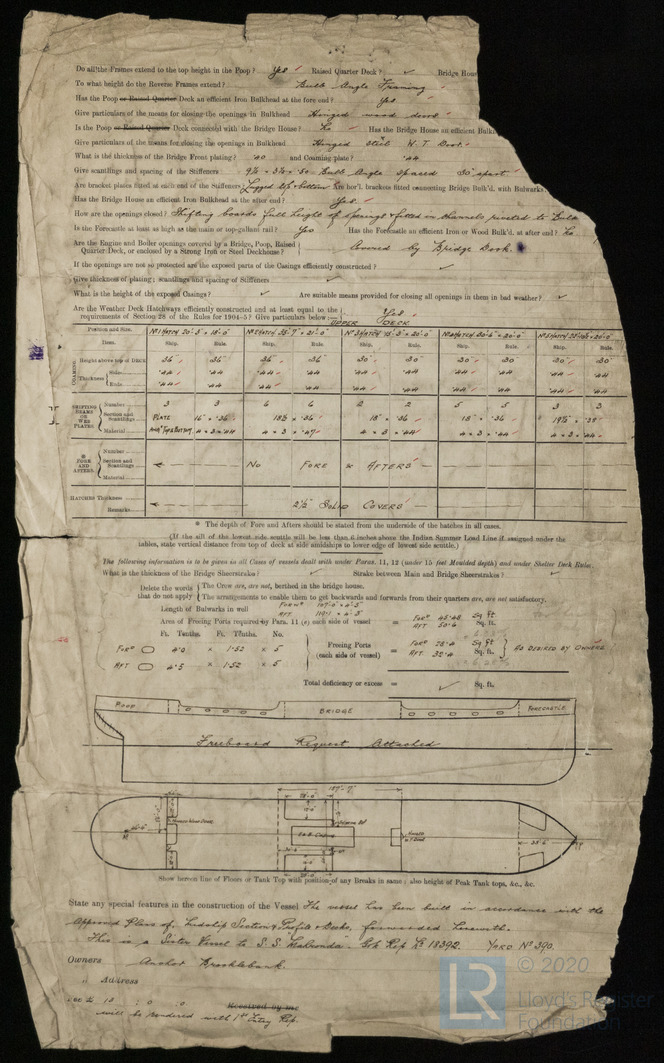 Do all the Frames extend to the top height in the Poop? Yes ✓ Raised Quarter Deck? ✓ Bridge Hous
To what height do the Reverse Frames extend? Bulb Angle Framing
Has the Poop or Raised Quarter Deck an efficient Iron Bulkhead at the fore end? Yes
Give particulars of the means for closing the openings in Bulkhead Hinged wood doors
Is the Poop or Raised Quarter Deck connected with the Bridge House? No Has the Bridge House an efficient Bulk
Give particulars of the means for closing the openings in Bulkhead Hinged steel W.T. Door.
What is the thickness of the Bridge Front plating? .40 and Coaming plate? .44
Give scantlings and spacing of the Stiffeners Bulb Angle spaced 30" apart.
Are bracket plates fitted at each end of the Stiffeners Lugged top & bottom Are hor'l. brackets fitted connecting Bridge Bulk'd. with Bulwarks
Has the Bridge House an efficient Iron Bulkhead at the after end? Yes
How are the openings closed? Shifting boards full height of openings fitted in channels, riveted to Bulk
Is the Forecastle at least as high as the main or top-gallant rail? Yes Has the Forecastle an efficient Iron or Wood Bulk'd. at after end? No
Are the Engine and Boiler openings covered by a Bridge, Poop, Raised
Quarter Deck, or enclosed by a Strong Iron or Steel Deckhouse? Covered by Bridge Deck.
If the openings are not so protected are the exposed parts of the Casings efficiently constructed? ✓
Give thickness of plating; scantlings and spacing of Stiffeners ✓
What is the height of the exposed Casings? ✓ Are suitable means provided for closing all openings in them in bad weather? ✓
Are the Weather Deck Hatchways efficiently constructed and at least equal to the
requirements of Section 28 of the Rules for 1904-5? Give particulars below:— Yes
UPPER DECK
Position and Size.
Item. Ship. Rule. Ship. Rule. Ship. Rule. Ship. Rule. Ship. Rule.
COAMING Height above top of DECK 36 36 36 36 30 30 30 30 30 30
Thickness Sides .44 .44 .44 .44 .44 .44 .44 .44 .44 .44
Ends .44 .44 .44 .44 .44 .44 .44 .44 .44 .44
SHIFTING BEAMS OR WEB PLATES Number 3 3 6 6 2 2 5 3 3
Section and Scantlings PLATE 16" × .36 18½ × .36 18" × .36 18" × .36 19½ × .38
Material Top & Bottom 4 × 3 × .44 4 × 3 × .47 4 × 3 × .44 4 × 3 × .44 4 × 3 × .44
* FORE AND AFTERS. Number
Section and Scantlings NO FORE & AFTERS
Material
HATCHES Thickness 2½" SOLID COVERS
Remarks
* The depth of Fore and Afters should be stated from the underside of the hatches in all cases.
(If the sill of the lowest side scuttle will be less than 6 inches above the Indian Summer Load Line if assigned under the
tables, state vertical distance from top of deck at side amidships to lower edge of lowest side scuttle.)
The following information is to be given in all Cases of Vessels dealt with under Paras. 11, 12 (under 15 feet Moulded depth) and under Shelter Deck Rules.
What is the thickness of the Bridge Sheerstrake? ✓ Strake between Main and Bridge Sheerstrakes? ✓
Delete the words that do not apply The Crew are, are not, berthed in the bridge house.
The arrangements to enable them to get backwards and forwards from their quarters are, are not satisfactory.
Length of Bulwarks in well
Area of Freeing Ports required by Para. 11 (e) each side of vessel = FORD 48.48 Sq. ft
AFT 50.4 Sq. ft.
Ft. Tenths. Ft. Tenths. No.
FORD 4.0 × 1.52 × 5
AFT 4.3 × 1.52 × 5
Freeing Ports (each side of vessel) = FORD 28.4 Sq ft
AFT 32.4 Sq. ft. AS DESIRED BY OWNERS
Total deficiency or excess = ✓ Sq. ft.
POOP BRIDGE FORECASTLE
Freeboard Request Attached
Show hereon line of Floors or Tank Top with position of any Breaks in same; also height of Peak Tank tops, &c., &c.
State any special features in the construction of the Vessel The vessel has been built in accordance with the
Approved Plans of Midship Section & Profile & Decks, forwarded herewith.
This is a Sister Vessel to S.S. Makronda. Gls Rep No 18392. YARD No 390.
Owners Anchor Brocklebank.
" Address
Received by me
will be rendered with 1st Entry Rep.
© 2020
LR
Lloyd's Register
Foundation